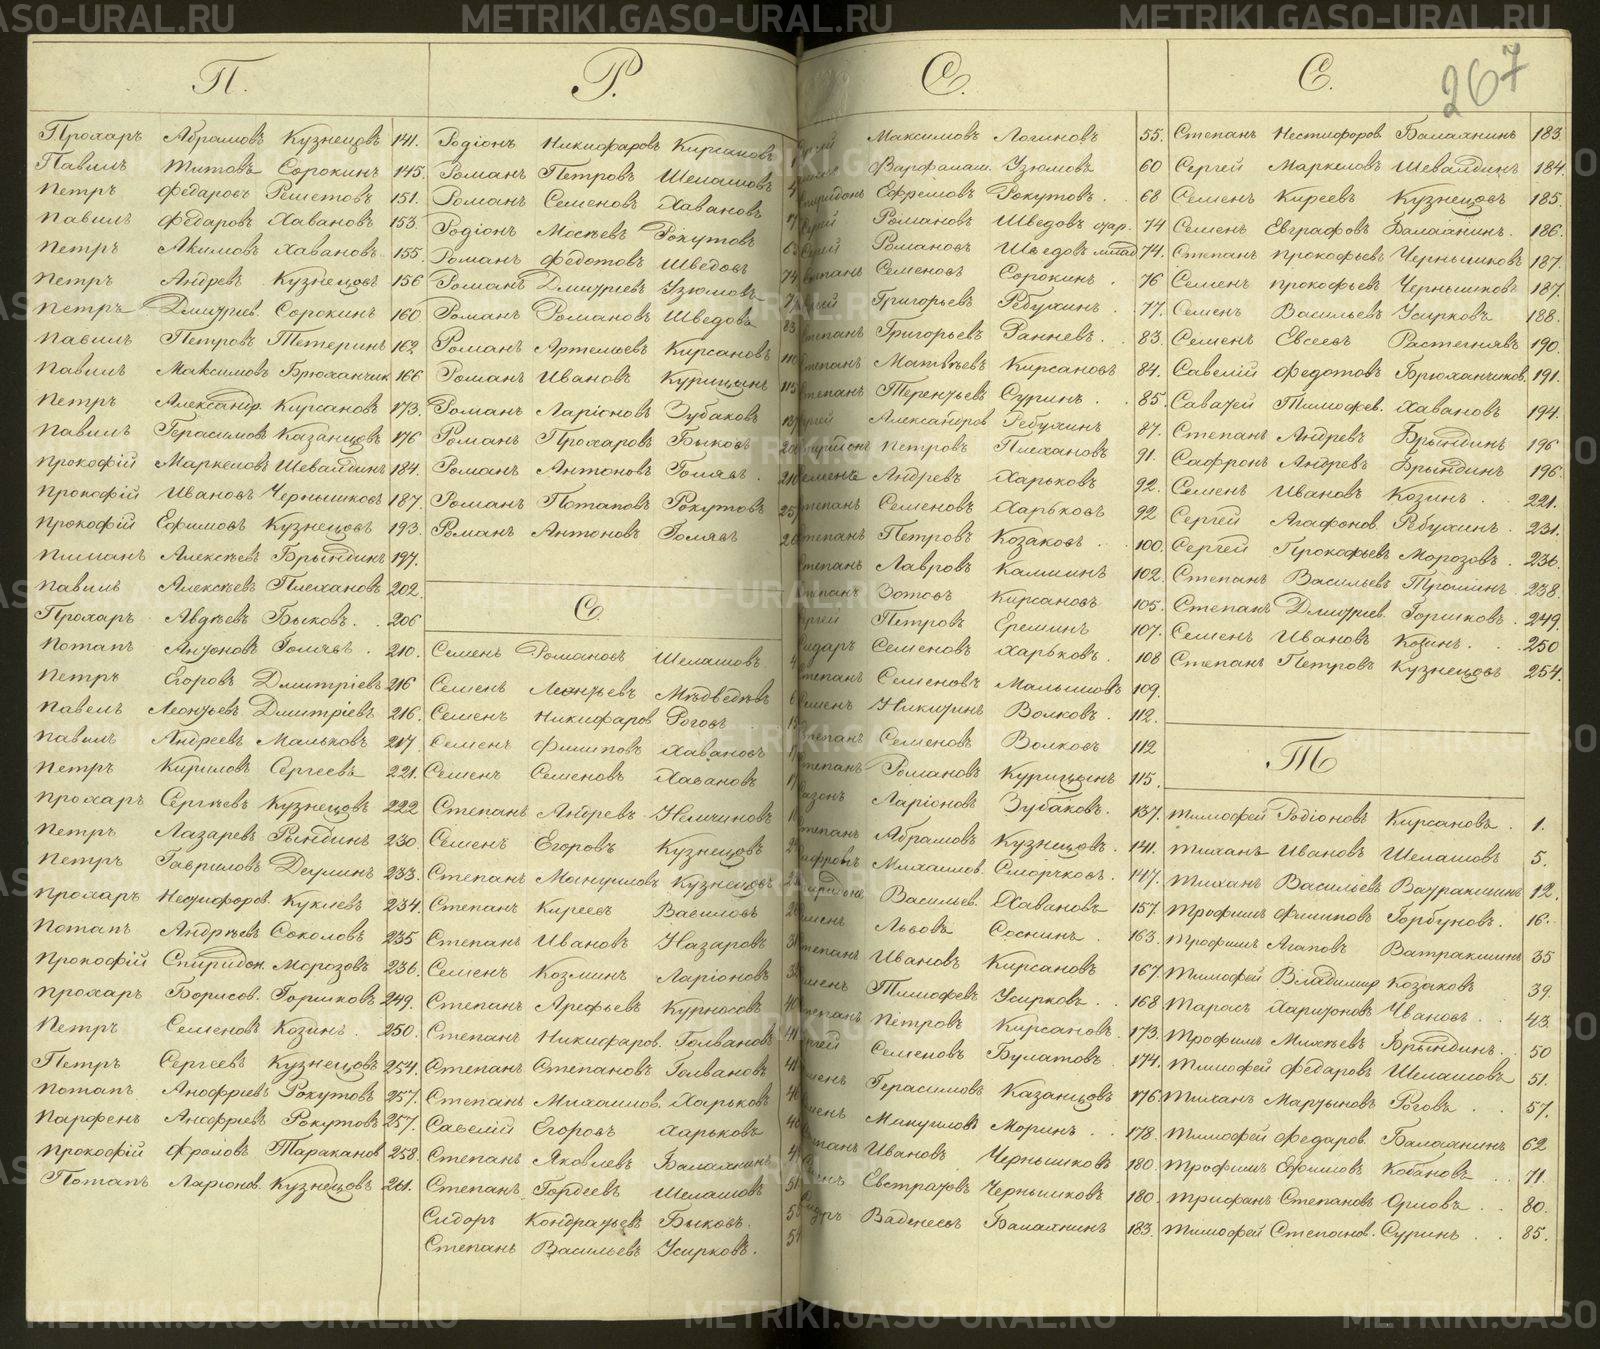 METRIKI.GASO-URAL.RU
267
П.
Прохаръ Абрамовъ Кузнецовъ 141.
Павилъ Титовъ Сорокинъ 145.
Петръ Федаровъ Решетовъ 151.
Павилъ Федаровъ Хавановъ 153.
Петръ Акимовъ Хавановъ 155.
Петръ Андревъ Кузнецовъ 156
Петръ Дмитріев. Сорокинъ 160
Павилъ Петровъ Тетеринъ 162
Павилъ Максимовъ Брюханчик 166
Петръ Александр. Кирсановъ 173.
Павилъ Герасимовъ Казанцовъ 176
Прокофій Маркеловъ Шевалдинъ 184.
Прокофій Ивановъ Чернышковъ 187.
Прокофій Ефимовъ Кузнецовъ 193.
Пиманъ Алексѣевъ Брындинъ 197.
Павилъ Алексѣевъ Плехановъ 202.
Прохаръ Авдѣевъ Быковъ. 206
Потапъ Антоновъ 210.
Петръ Егоровъ Дмитріевъ 216
Павелъ Леонтьевъ Дмитріевъ 216.
Павилъ Андреевъ Мальковъ 217.
Петръ Кириловъ Сергеевъ 221.
Прохаръ Сергѣевъ Кузнецовъ 222
Петръ Лазаревъ Рындинъ 230.
Петръ Гавриловъ Деулинъ 233.
Прохаръ Нестифоров. Куклевъ 234.
Потапъ Андрѣевъ Соколовъ 235
Прокофій Спиридон. Морозовъ 236.
Прохаръ Борисов. Горшковъ 249.
Петръ Семеновъ Козинъ. 250.
Петръ Сергеевъ Кузнецовъ 254.
Потапъ Анофріевъ Рокутовъ 257.
Парфенъ Анофріевъ Рокутовъ 257.
Прокофій Фроловъ Таракановъ 258.
Потапъ Ларіонов. Кузнецовъ 261.
Р.
Родіонъ Никифаровъ Кирсановъ
Романъ Петровъ Шелашовъ
Романъ Семеновъ Хавановъ
Родіонъ Мосѣевъ Рокутовъ
Романъ Федотовъ Шведовъ
Романъ Дмитріевъ Узюмовъ
Романъ Романовъ Шведовъ
Романъ Артемьевъ Кирсановъ
Романъ Ивановъ Курицынъ
Романъ Ларіоновъ Зубаковъ
Романъ Прохаровъ Быковъ
Романъ Антоновъ Голявъ
Романъ Потаповъ Рокутовъ
Романъ Антоновъ Голявъ
С.
Семенъ Романовъ Шелашовъ
Семенъ Леонтьевъ Мѣдведѣвъ
Семенъ Никифаров Роговъ
Семенъ Филиповъ Хавановъ
Семенъ Семеновъ Хавановъ
Степанъ Андревъ Неличновъ
Семенъ Егоровъ Кузнецовъ
Степанъ Мануиловъ Кузнецовъ
Степанъ Киреевъ Василовъ
Степанъ Ивановъ Назаровъ
Семенъ Козминъ Ларіоновъ
Степанъ Арефьевъ Курносовъ 40
Степанъ Никифаров.Голвановъ 41
Степанъ Степановъ Голвановъ 41
Степанъ Михаилов. Харьковъ
Савелій Егоровъ Харьковъ
Степанъ Яковлевъ Балахнинъ
Степанъ Гордеевъ Шелашовъ
Сидоръ Кондратьевъ Быковъ.
Степанъ Васильевъ Усирковъ.
С.
Максимовъ Логиновъ 55.
Варфалам. Узюмовъ 60
Ефремовъ Рокутовъ. 68
Романовъ Шведовъ стар. 74
Романовъ Шведовъ млад 74.
Семеновъ Сорокинъ. 76
Григорьевъ Рѣбухинъ. 77.
Степанъ Григорьевъ Ранневъ. 83.
Степанъ Матвѣевъ Кирсановъ 84.
Степанъ Терентьевъ Суринъ. 85.
Александров Рѣбухинъ 87.
Петровъ Плехановъ 91.
Андревъ Харьковъ 92.
Степанъ Семеновъ Харьковъ 92
Степанъ Петровъ Козаковъ 100.
Степанъ Лавровъ Калининъ 102.
Степанъ Зотовъ Кирсановъ 105.
Петровъ Ереминъ 107.
Сидаръ Семеновъ Харьковъ. 108
Степанъ Семеновъ Малышовъ 109.
Семенъ Никитинъ Волковъ. 112.
Степанъ Семеновъ Волковъ 112
Степанъ Романовъ Курицынъ 115.
Ларіоновъ Зубаковъ. 137.
Степанъ Абрамовъ Кузнецовъ. 141.
Михаилов. Сморчковъ. 147.
Васильев. Хавановъ 157.
Львовъ Соснинъ. 163.
Степанъ Ивановъ Кирсановъ 167.
Тимофевъ Усирковъ. 168
Степанъ Петровъ Кирсановъ. 173.
Семеновъ Булатовъ. 174.
Герасимовъ Казанцовъ 176.
Мануиловъ Моринъ. 178.
Ивановъ Чернышковъ 180.
Евстратовъ Чернышковъ 180.
Балахнинъ 183.
С.
Степанъ Нестифоров. Балахнинъ 183.
Сергей Маркеловъ Шевалдинъ 184.
Семенъ Киреевъ Кузнецовъ 185.
Семенъ Евграфовъ Балахнинъ. 186.
Степанъ Прокофьевъ Чернышковъ 187.
Семенъ Прокофьевъ Чернышковъ 187.
Семенъ Васильевъ Усирковъ 188.
Семенъ Евсеевъ Растегнявъ 190.
Савелій Федотовъ Брюханчиков. 191.
Саватей Тимофев. Хавановъ 194.
Степанъ Андревъ Брындинъ 196
Сафронъ Андревъ Брындинъ 196.
Семенъ Ивановъ Козинъ. 221.
Сергей Агафонов. Рѣбухинъ. 231.
Сергей Прокофьевъ Морозовъ. 236.
Степанъ Васильевъ Трошинъ. 238.
Степанъ Дмитріев. Горшковъ. 249.
Семенъ Ивановъ Козинъ. 250
Степанъ Петровъ Кузнецовъ 254.
Т
Тимофей Родіоновъ Кирсановъ. 1.
Тиханъ Ивановъ Шелашовъ 5.
Тиханъ Васильевъ Ватракшинъ 12.
Трофимъ Филиповъ Горбуновъ. 16.
Трофимъ Агаповъ Ватракшинъ 35
Тимофей Владимир Козаковъ 39.
Тарасъ Харитоновъ Ивановъ. 43.
Трофимъ Михѣевъ Брындинъ. 50
Тимофей Федаровъ Шелашовъ 51.
Тиханъ Мартыновъ Роговъ. 57.
Тимофей Федаров. Балахнинъ 62
Трофимъ Ефимовъ Кобановъ. 71.
Трифанъ Степановъ Орловъ. 80.
Тимофей Степанов. Суринъ. 85.